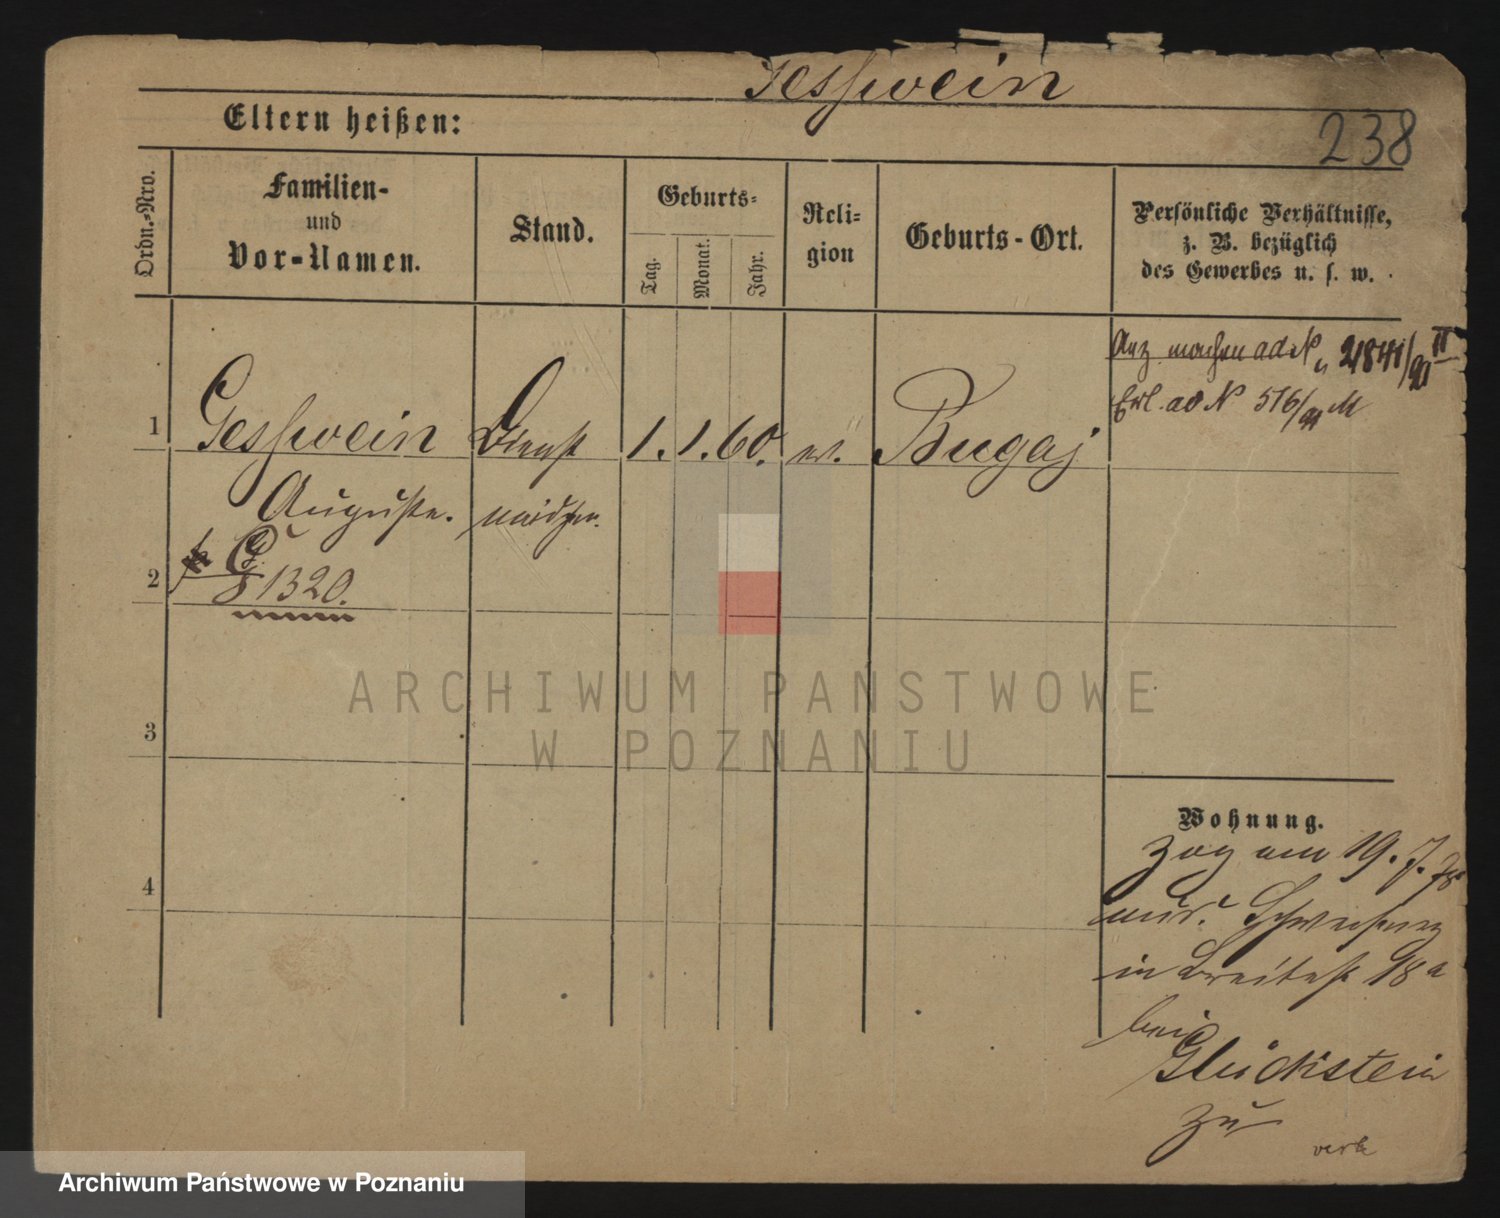 Gesswein
Eltern heißen:
238
Ordn.-Nro.
Familien-
und
Vor-Namen.
Stand.
Geburts-
Tag.
Monat.
Jahr.
Reli-
gion
Geburts-Ort.
Persönliche Verhältnisse,
z. B. bezüglich
des Gewerbes u. s. w.
Anz machen ad N
Erl. ad N 516/91 M
1 Gesswein Dienst 1. 1. 60. ev. Bugaj
Auguste. mädchen.
2
1320.
3
4
Wohnung.
Zog am 19. 7. 78
aus
in Breitestr 18a
bei
Glückstein
zu
ARCHIWUM PAŃSTWOWE
W POZNANIU
Archiwum Państwowe w Poznaniu